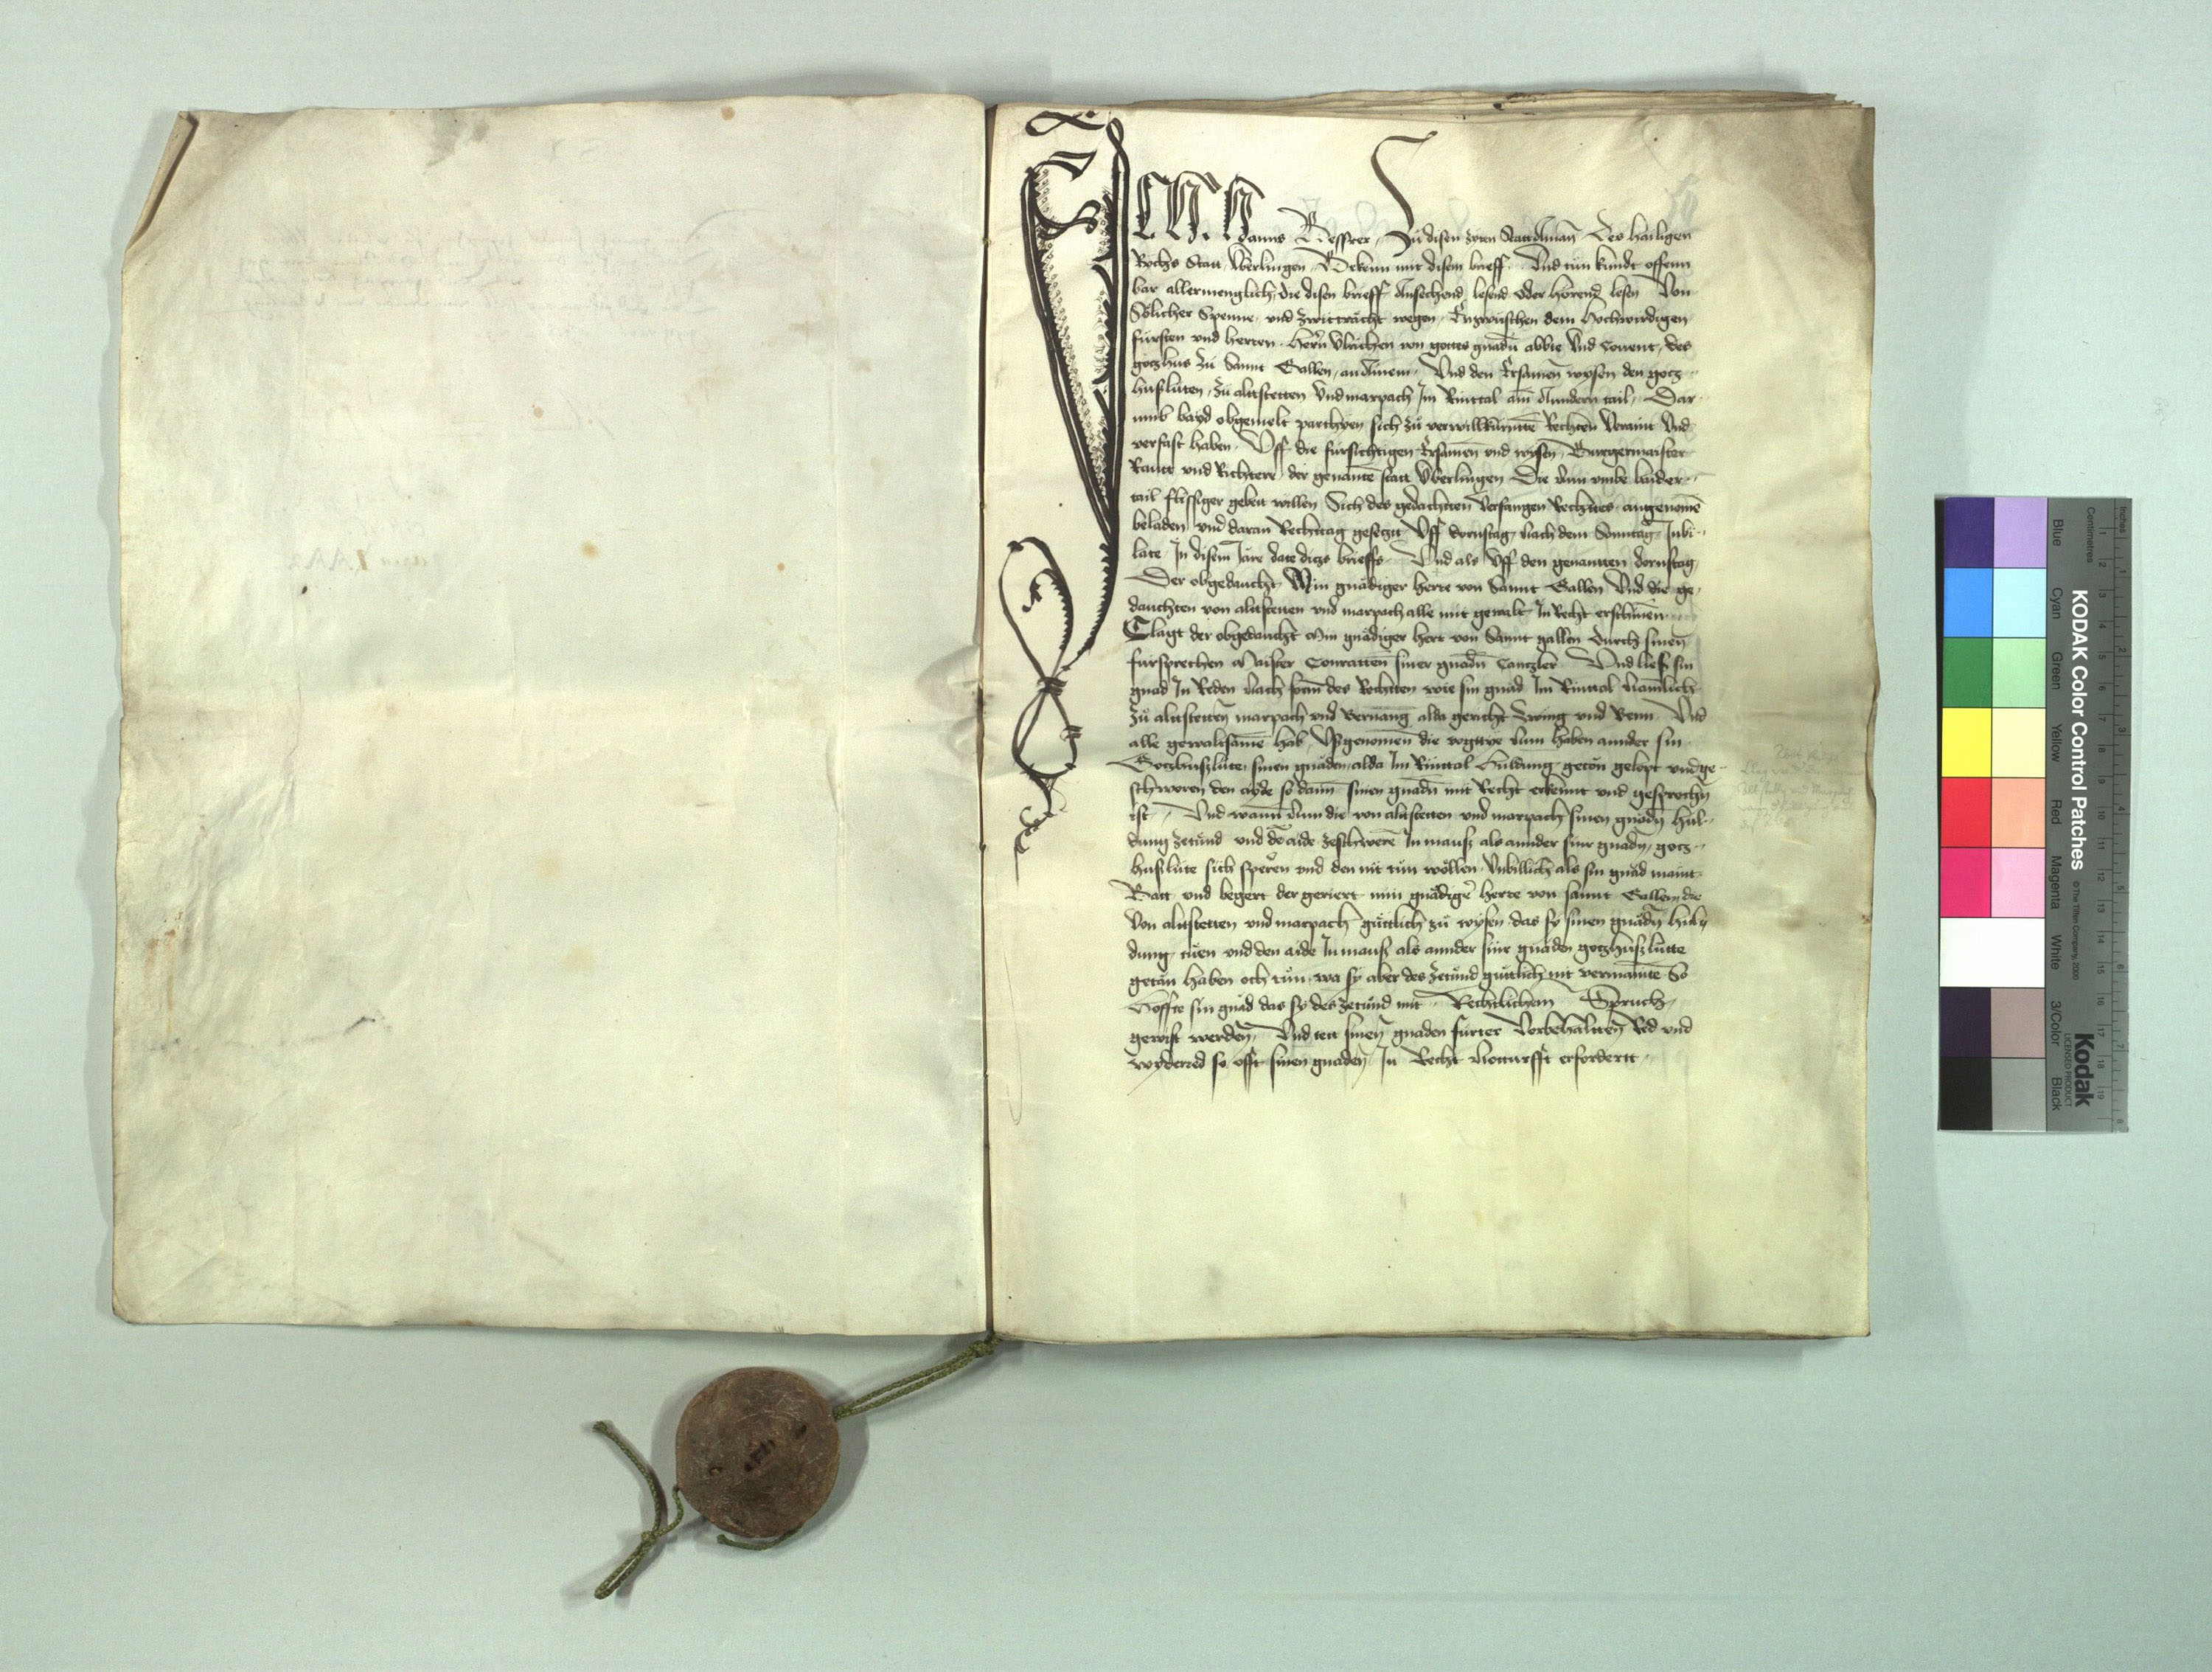 Ich Hanns Besserer Zu disen zyten Stattaman Des hailigen
Rychs Statt Vberlingen Bekenn mit disem brieff Und tun kundt offenn
bar allermenglich, die disen brieff Ansechend, lesend oder hörend lesen Von
Sölicher Spenne, und zwitträcht wegen Entzwüschen dem Hochwirdigen
fürsten und herren hern Ulrichen von gottes gnadn abbte Und Convent, des
gotzhus zu Sannt Gallen, an Ainem Und den Ersamen wysen den gotz
huslüten, zu altstetten Und marpach Im Rintal am Anndern tail, Dar
umb bayd obgemelt parthyen sich zu verwillkürnttē Rechten Veraint Und
verfast haben, Uff die fürsichtigen Ersamen und wysen, Burgermaister
Rautt und Richtere, der genantē statt Uberlingen Die Nun umbe baider
tail flissiger gebett willen Sich des gedachtten Verfangen Rechttes angenomē
beladen und daran Rechttag gesetzt Uff dornstag, nach dem Sonntag Jubi
late In disem Jare date ditzs brieffs Und als Uff den genannten dornstag
Der obgedaucht Min gnädiger herre von Sannt Gallen Und die ge
dauchten von altstetten und marpach alle mit gewalt In Recht erschinen
Clagt der obgedaucht Min gnädiger herr von Sannt gallen durch sinen
fürsprechen Maister Conratten siner gnadn Cantzler Und lies sin
gnad In Reden Nach form des Rechtten wie sin gnad Im Rintal Namlich
zu altstetten marpach und Bernang alda gericht zwing und Benn Und
alle gewaltsame hab, Usgenomen die vogtye Nun haben annder sin
Gotzhuslüte, sinen gnaden, alda Im Rinttal Huldung getön gelopt und ge
schworen den ayde so dann sinen gnadn mit Recht erkennt und gesprochn
ist Und wann Nun die von altstetten und marpach sinen gnadn hul
dung zetund und dē aide zeschwerē In maus als annder sinr gnadn, gotz
huslüte sich speren und den nit tun wöllen, Unbillich als sin gnad maint
Batt und begert der geriert min gnädigr herre von sannt Gallen, die
Von altstetten und marpach güttlich zu wysen, das sy sinen gnadn hul
dung, tüen und den aide In maus als annder sinr gnaden gotzhuslütte
getän haben och tun, wa sy aber des zetund güttlich nit vermainte So
Hoffte sin gnad das sy des zetund mit Rechtlichem Spruch,
gewist werden, Und tett sinen gnaden fürter Vorbehaltten Red und
wyderred so offt sinen gnaden, In Recht Notturfft erfordertt
KODAK Color Control Patches
© The Tiffen Company, 2000
Kodak
LICENSED PRODUCT
Blue Cyan Green Yellow Red Magenta White 3/Color Black
Inches
Centimetres